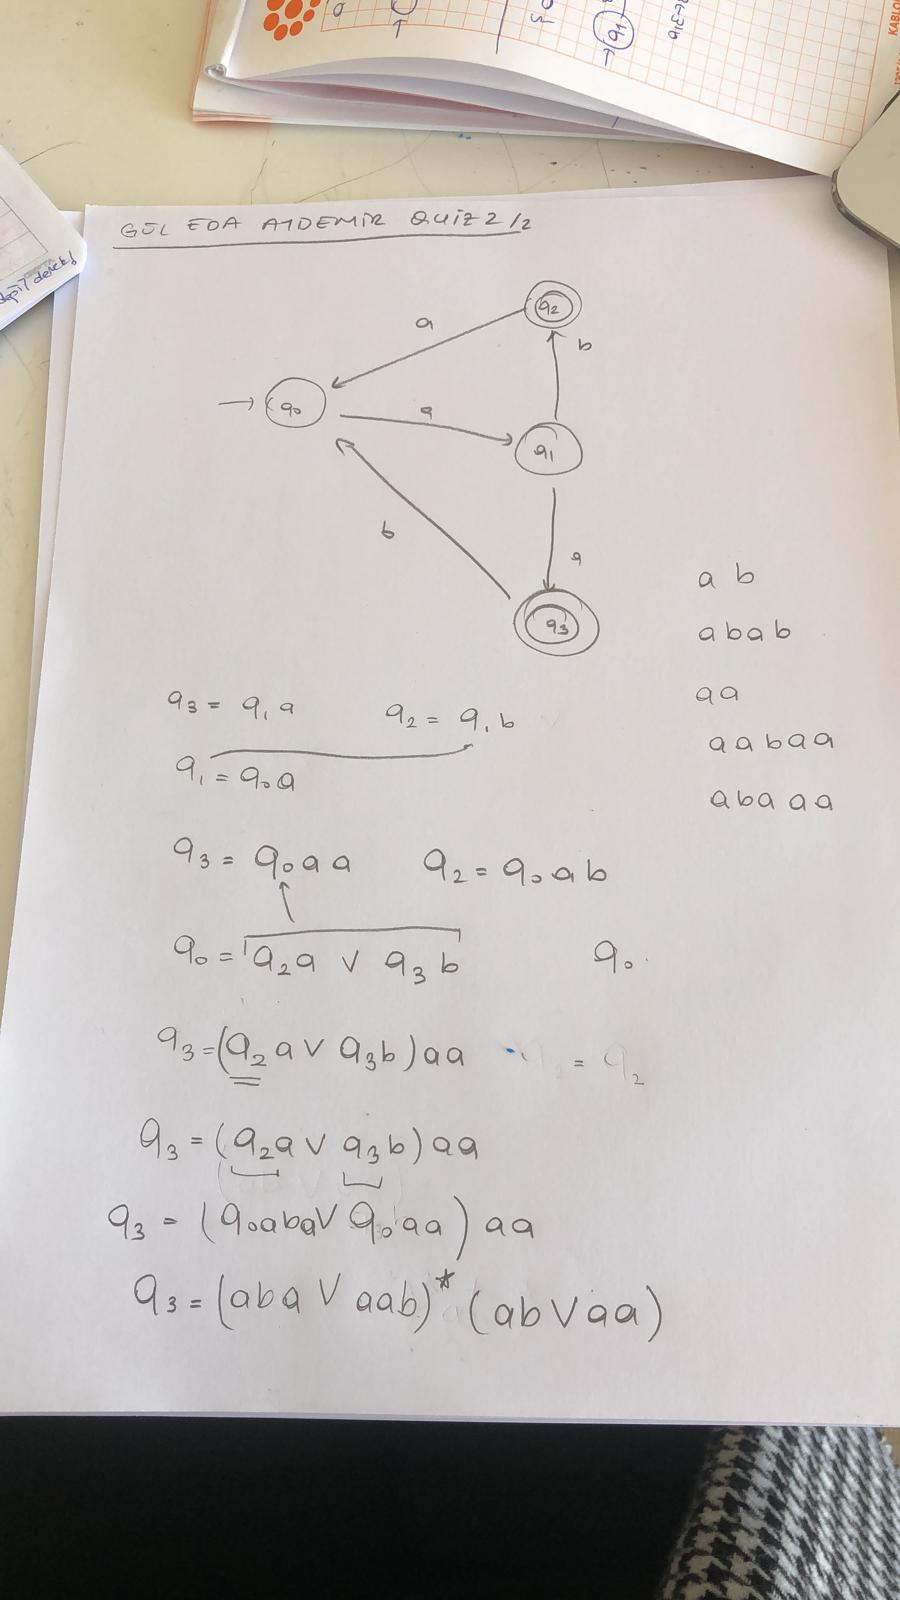 GÜL EDA AYDEMİR QUİZ 2/2
q2
a
b
q0
a
q1
b
a
q3
a b
a b a b
a a
a a b a a
a b a a a
q3 = q1 a q2 = q1 b
q1 = q0 a
q3 = q0 a a q2 = q0 a b
q0 = q2 a ∨ q3 b q0.
q3 = (q2 a ∨ q3 b) a a = q2
q3 = (q2 a ∨ q3 b) a a
q3 = (q0 a b a ∨ q0 a a) a a
q3 = (a b a ∨ a a b)* (a b ∨ a a)